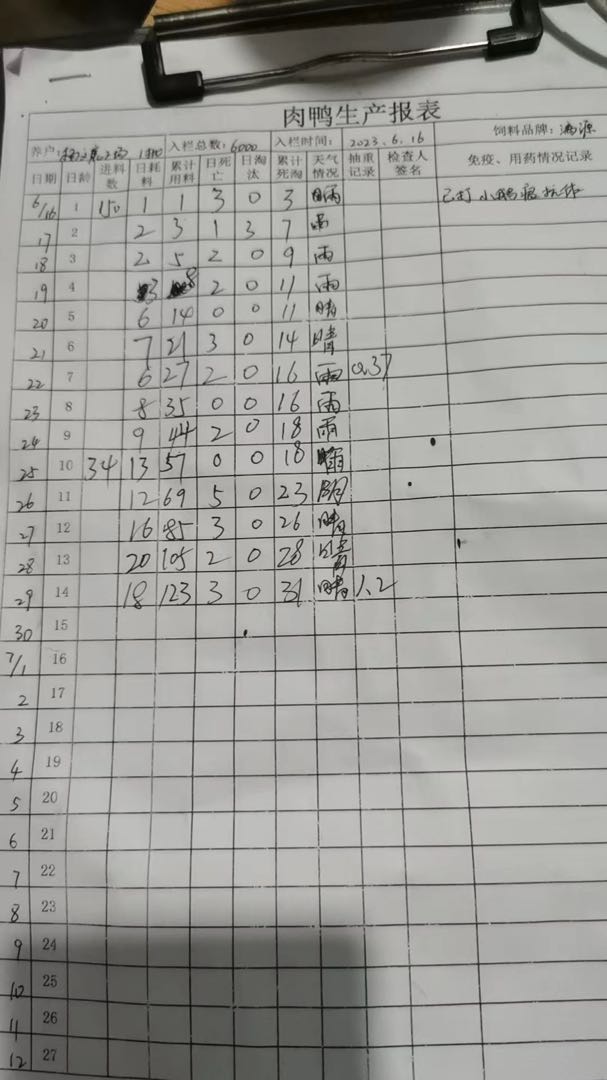 肉鸭生产报表
养户: 1批 入栏总数: 6000 入栏时间: 2023.6.16 饲料品牌: 源
日期 日龄 进料数 日耗料 累计用料 日死亡 日淘汰 累计死淘 天气情况 抽重记录 检查人签名 免疫、用药情况记录
6/16 1 150 1 1 3 0 3 雨 已打小鹅瘟抗体
17 2 2 3 1 3 7
18 3 2 5 2 0 9 雨
19 4 3 8 2 0 11 雨
20 5 6 14 0 0 11 晴
21 6 7 21 3 0 14 晴
22 7 6 27 2 0 16 雨 0.37
23 8 8 35 0 0 16 雨
24 9 9 44 2 0 18 雨
25 10 34 13 57 0 0 18 雨
26 11 12 69 5 0 23 阴
27 12 16 85 3 0 26 晴
28 13 20 105 2 0 28 晴
29 14 18 123 3 0 31 晴 1.2
30 15
7/1 16
2 17
3 18
4 19
5 20
6 21
7 22
8 23
9 24
10 25
11 26
12 27